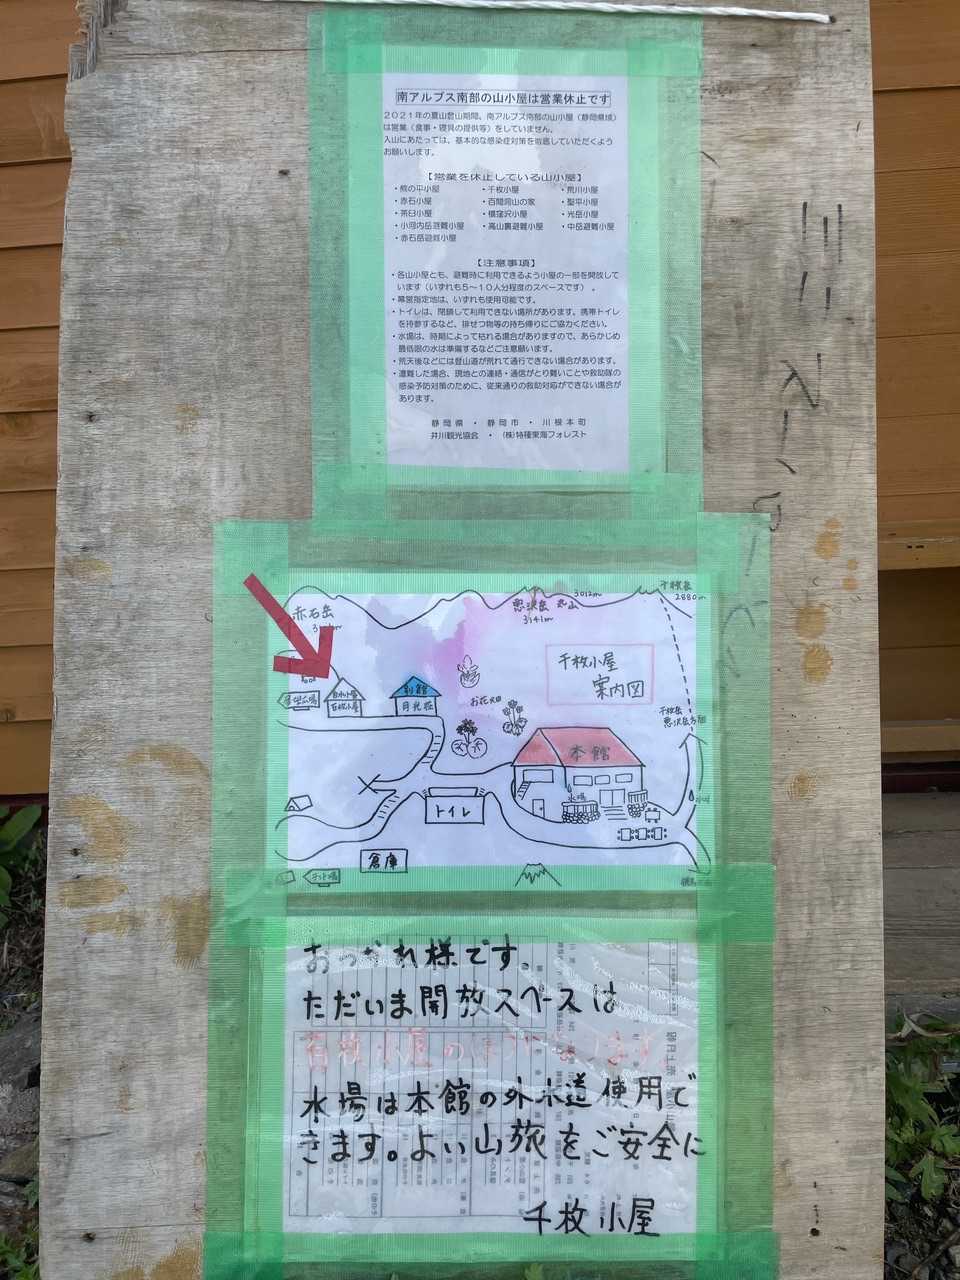 南アルプス南部の山小屋は営業休止です
2021年の夏山登山期間、南アルプス南部の山小屋（静岡県域）
は営業（食事・寝具の提供等）をしていません。
入山にあたっては、基本的な感染症対策を徹底していただくよう
お願いします。
【営業を休止している山小屋】
・熊の平小屋 ・千枚小屋 ・荒川小屋
・赤石小屋 ・百間洞山の家 ・聖平小屋
・茶臼小屋 ・横窪沢小屋 ・光岳小屋
・小河内岳避難小屋 ・高山裏避難小屋 ・中岳避難小屋
・赤石岳避難小屋
【注意事項】
・各山小屋とも、避難時に利用できるよう小屋の一部を開放して
います（いずれも5～10人分程度のスペースです）。
・幕営指定地は、いずれも使用可能です。
・トイレは、閉鎖して利用できない場所があります。携帯トイレ
を持参するなど、排せつ物等の持ち帰りにご協力ください。
・水場は、時期によって枯れる場合がありますので、あらかじめ
最低限の水は準備するなどご注意願います。
・荒天後などには登山道が荒れて通行できない場合があります。
・遭難した場合、現地との連絡・通信がとり難いことや救助隊の
感染予防対策のために、従来通りの救助対応ができない場合が
あります。
静岡県 ・ 静岡市 ・ 川根本町
井川観光協会 ・ （株）特種東海フォレスト
千枚岳
2880m
赤石岳
悪沢岳 丸山
3141m
千枚小屋
案内図
別館
月光荘
百枚小屋
お花畑
千枚岳
悪沢岳方面
本館
水場
トイレ
倉庫
テント場
おつかれ様です。
ただいま開放スペースは
百枚小屋のほうになります。
水場は本館の外水道使用で
きます。よい山旅をご安全に
千枚小屋